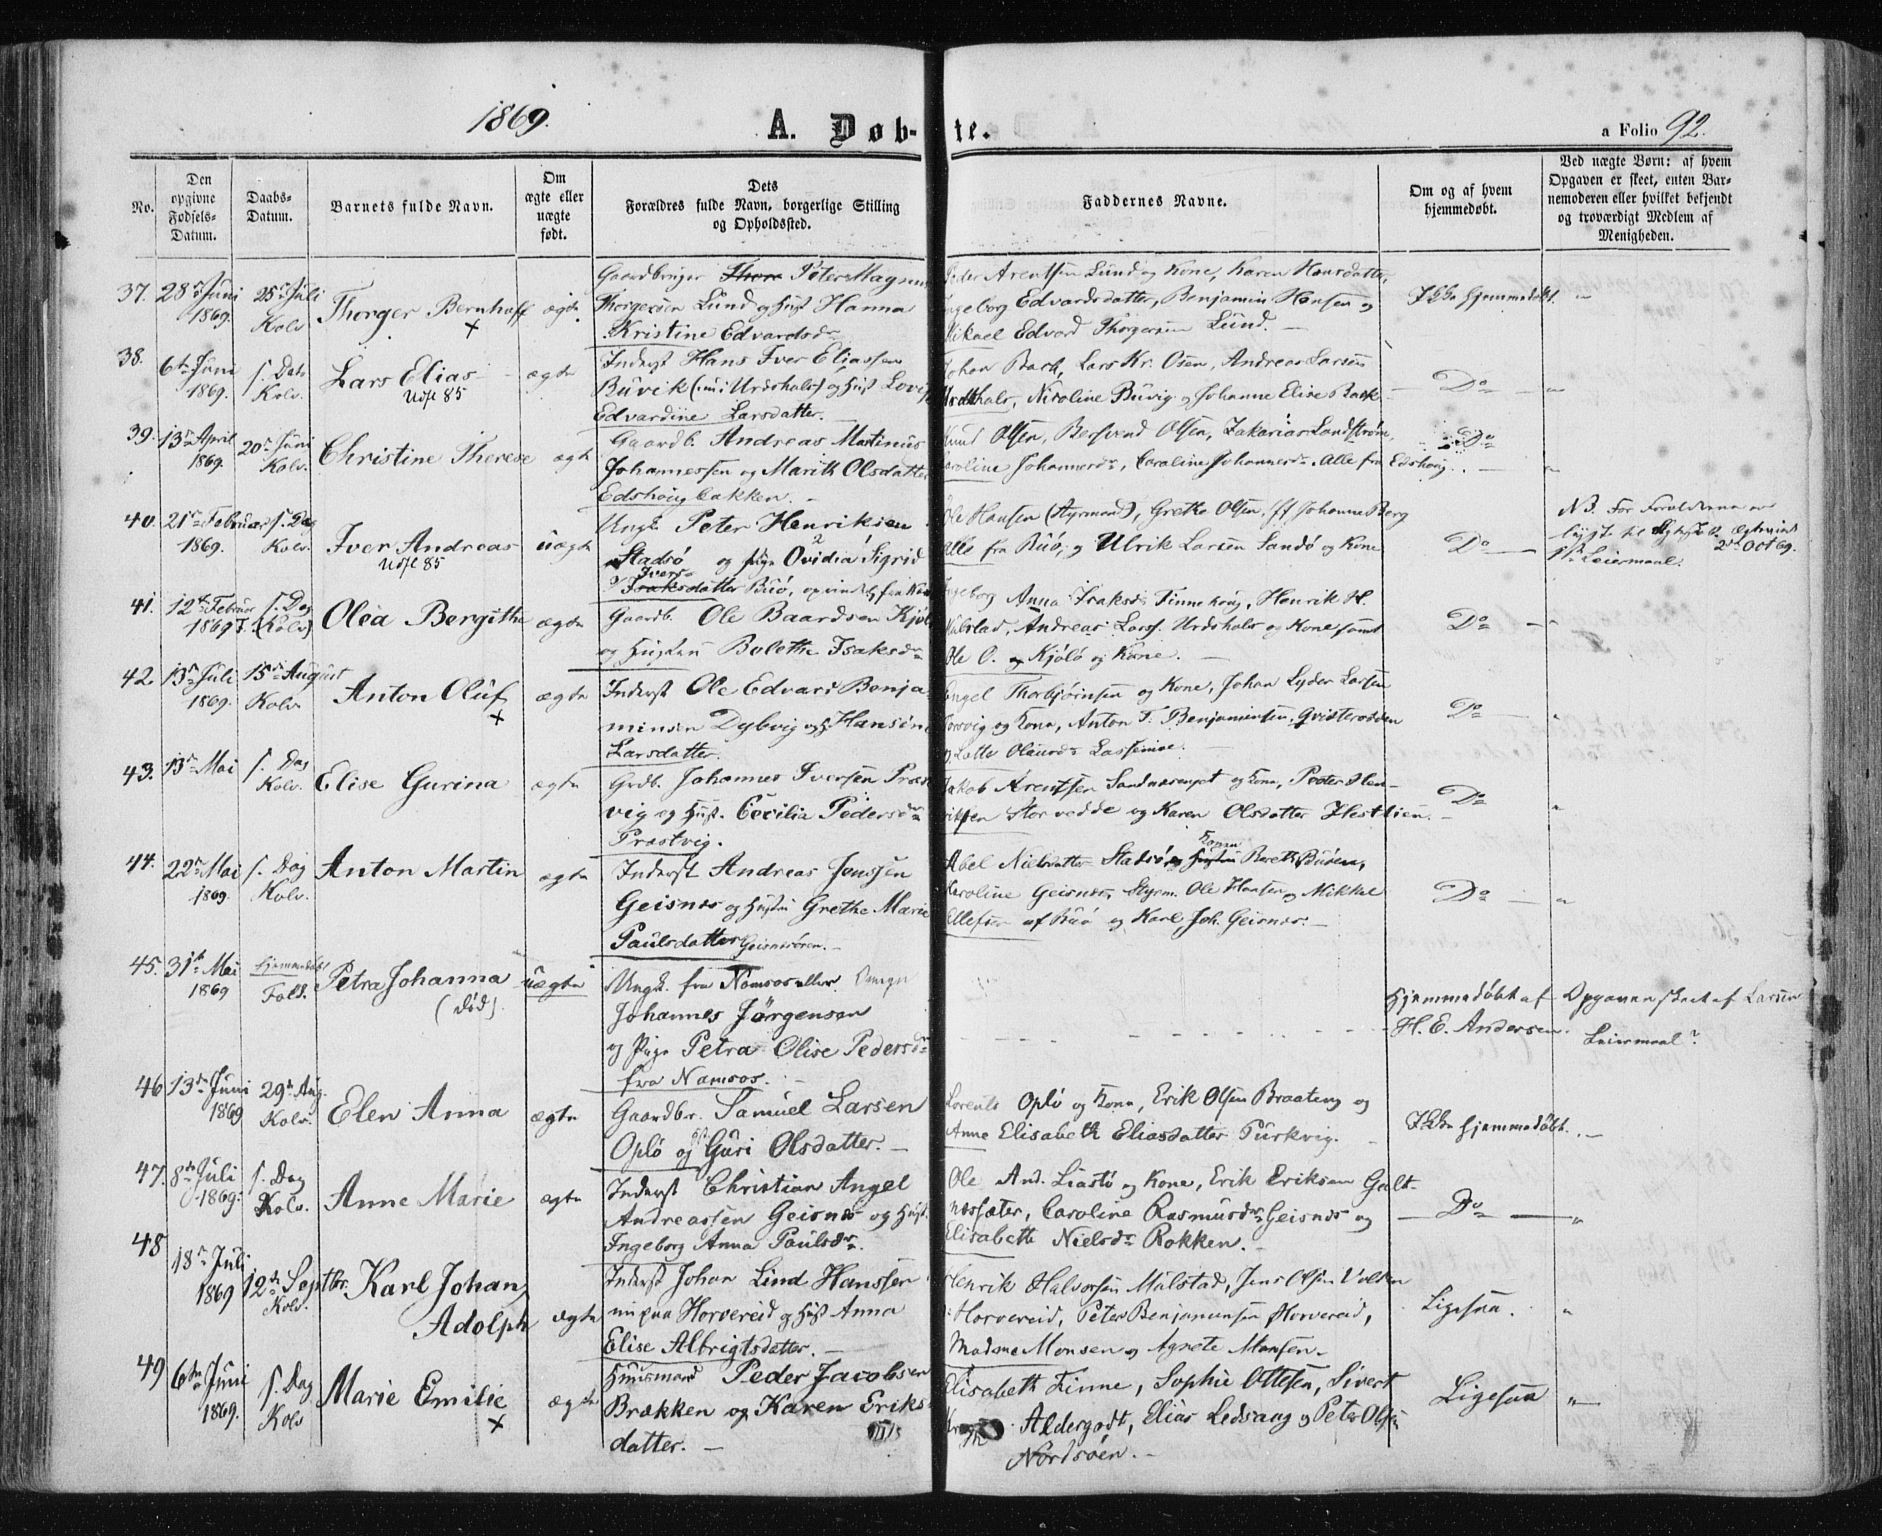 1869.
A. Døb-te.
a Folio 92.
No.
Den opgivne Fødsels-Datum.
Daabs-Datum.
Barnets fulde Navn.
Om ægte eller uægte født.
Dets Forældres fulde Navn, borgerlige Stilling og Opholdssted.
Faddernes Navne.
Om og af hvem hjemmedøbt.
Ved uægte Børn: af hvem Opgaven er skeet, enten Barnemoderen eller hvilket bekjendt og troværdigt Medlem af Menigheden.
37. 28de Juni 1869. 25de Juli Kolv. Thorger Bernhoff ægte
Gaardbruger Peter Magnus
Thorgersen Lund og Hust Hanna
Kristine Edvardsdr
Peder Arentsen Lund og Kone, Karen Hansdatter,
Ingeborg Edvardsdatter, Benjamin Hansen og
Mikael Edvard Thorgersen Lund.
Ikke hjemmedøbt. "
38. 6te Juni 1869. s. Dato Kolv. Lars Elias Udfl 85 ægte
Inderst Hans Iver Eliassen
Buvik (nu i Urdshals) og Hust Lovise
Edvardine Larsdatter.
Johan Back, Lars Kr. Osen, Andreas Larsen
Urdshals, Nicoline Buvig og Johanne Elise Back
Do "
39. 13de April 1869. 20de Juni Kolv. Christine Therese ægte
Gaardb. Andreas Martinus
Johannessen og Marith Olsdatter
Edshougbakken.
Knud Olsen, Bersvend Olsen, Zakarias Landstrøm,
Caroline Johannesdr, Caroline Johannesdr. Alle fra Edshoug.
Do "
40. 21de Februar 1869. s. Dag Kolv. Iver Andreas Udfl 85 uægte
Ungk. Peter Henriksen
Stadsø og Pige Ovidia Sigrid
Ivers-
Isaksdatter Buø,
Ole Hansen (Styrmand), Grethe Olsen, Johanna Berg
Alle fra Buø, og Ulrik Larsen Sandø og Kone
Do
NB. For Forældrene er
lyst til Ægteskab
2de Oct 69.
Leiermaal.
41. 12te Februar 1869 s. Dag (Kolv.) Olea Bergithe ægte
Gaardb. Ole Baardsen Kjølø
og Hustru Bolethe Isaksdr
Ingeborg Anna Isaksdr Finnehoug, Henrik H.
Mulstad, Andreas Larss. Urdshals og Kone samt
Ole O. Kjølø og Kone.
Do "
42. 13de Juli 1869. 15de August Kolv Anton Oluf ægte
Inderst Ole Edvard Benja-
minsen Dybvig og H. Hansine
Larsdatter.
Engel Thorbjørnsen og Kone, Johan Lyder Larsen
og Kone, Anton T. Benjaminsen,
og Lotte
Do "
43. 13de Mai s. Dag Kolv. Elise Gurina ægte
Grdb. Johannes Iversen Præst-
vig og Hust. Cecilia Pedersdr
Præstvig.
Jakob Arentsen og Kone, Peder Hen-
riksen Storvedde og Karen Olsdatter Hestlien.
Do "
44. 22de Mai 1869. s. Dag Kolv. Anton Martin ægte
Inderst Andreas Jenssen
Geisnæs og Hustru Grethe Marie
Paulsdatter Geisnæsøren.
Abel Nielsdatter Stadsø, Konen Bereth Buøen,
Karoline Geisnæs, Styrm. Ole Hansen og Mikkel
Ellefsen af Buø og Karl Joh. Geisnæs.
Do "
45. 31te Mai 1869 Hjemmedøbt Fold. Petra Johanna (død). uægte
Ungk. fra Namsos eller
Johannes Jørgensen
og Pige Petra Olise Pedersdr
fra Namsos.
Hjemmedøbt af
H. E. Andersen.
Opgaven skeet af Larsen
Leiermaal?
46 13de Juni 1869 29de Aug. Kolv. Elen Anna ægte
Gaardbr. Samuel Larsen
Oplø og Guri Olsdatter.
Lorents Oplø og Kone, Erik Olsen Braaten og
Anne Elisabeth Eliasdatter Purkvig.
Ikke hjemmedøbt.
47. 8de Juli 1869. s. Dag Kolv. Anne Marie ægte
Inderst Christian Angel
Andreassen Geisnæs og Hust.
Ingeborg Anna Paulsdr.
Ole And. Liastø og Kone, Erik Eriksen Galt-
næssæter, Caroline Rasmusdr Geisnæs og
Elisabeth Nielsdr Rokken.
Do "
48 18de Juli 1869 12te Septbr. Kolv. Karl Johan Adolph ægte
Inderst Johan Lind Hanssen
nu paa Horvereid og Hust Anna
Elise Albrigtsdatter.
Henrik Halvorsen Mulstad, Jens Olsen
Horvereid, Peter Benjaminsen Horvereid,
Madme Monsen og Agnete Monsen.
Ligesaa. "
49 6te Juni 1869. s. Dag Kolv Marie Emilie ægte
Huusmand Peder Jacobsen
Brækken og Karen Eriks-
datter.
Elisabeth Finne, Sophie Ottesen, Sivert
Aldergodt, Elias Ledsang og Peter Olsen
Nordsøen.
Ligesaa "